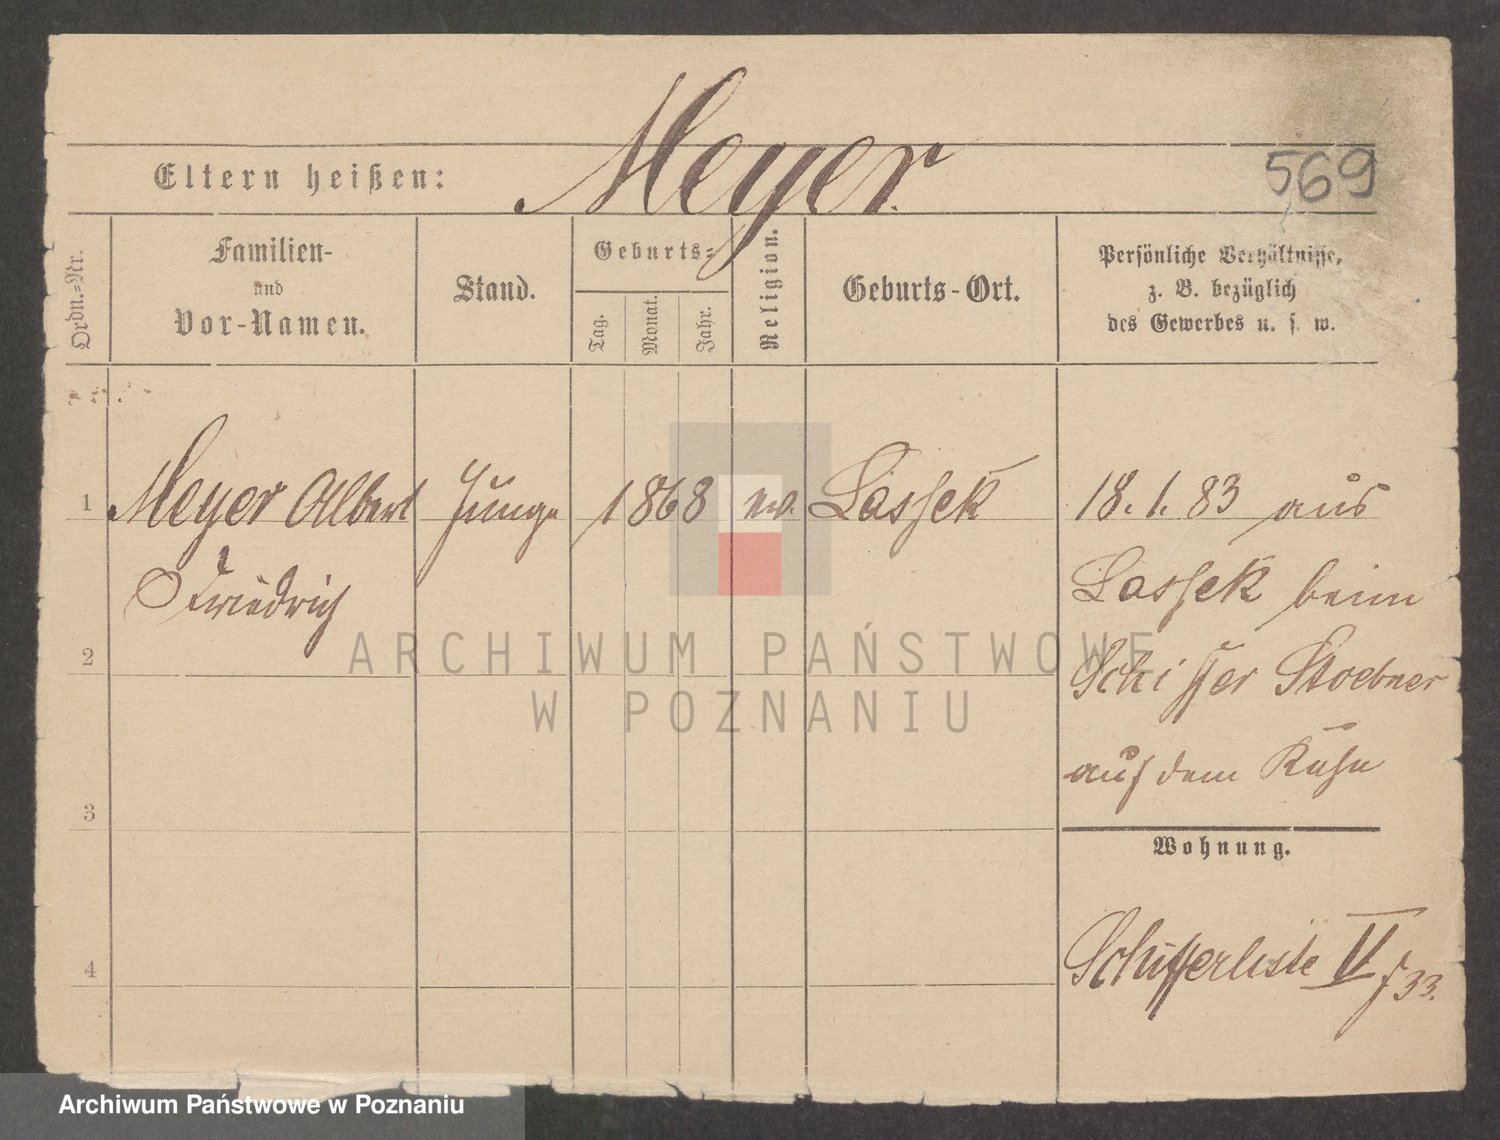 Meyer
Eltern heißen:
569
Ordn.=Nr.
Familien-
und
Vor-Namen.
Stand.
Geburts=
Tag.
Monat.
Jahr.
Religion.
Geburts-Ort.
Persönliche Verhältnisse,
z. B. bezüglich
des Gewerbes u. s. w.
1 Meyer Albert Junge 1868 ev. Lassek 18. 1. 83 aus
Friedrich
Lassek beim
Schiffer Stoebner
auf dem Kahn
2
3
4
Wohnung.
Schifferliste V f 33.
ARCHIWUM PAŃSTWOWE
W POZNANIU
Archiwum Państwowe w Poznaniu